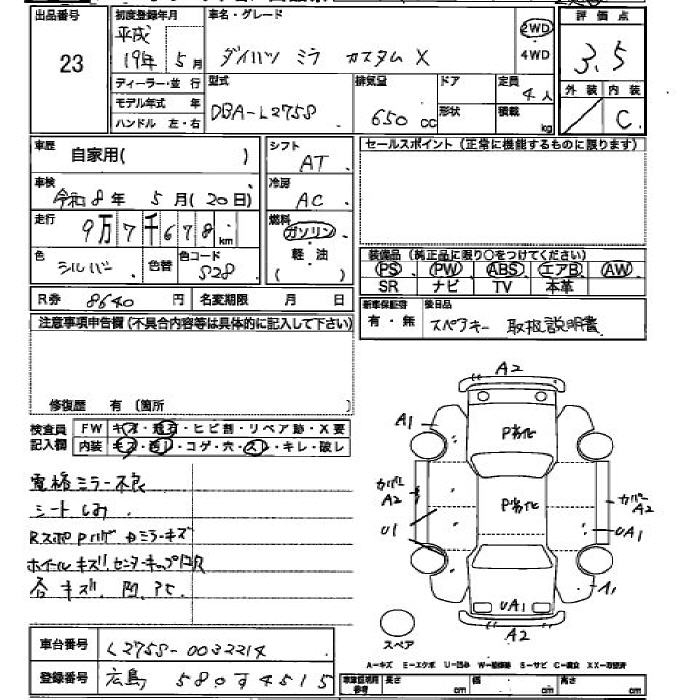 出品番号 23
初度登録年月 平成 19年 5月
車名・グレード ダイハツ ミラ カスタム X
2WD
4WD
評価点 3.5
外装 内装 C
ディーラー・並行
モデル年式 年
ハンドル 左・右
型式 DBA-L275S
排気量 650 CC
ドア
形状
定員 4人
積載 kg
車歴 自家用( )
シフト AT
セールスポイント(正常に機能するものに限ります)
車検 令和8年 5月(20日)
冷房 AC
走行 9万7千678 km
燃料 ガソリン
軽・油
( )
色 シルバー 色替 色コード S28
装備品(純正品に限り○をつけてください)
PS PW ABS エアB AW
SR ナビ TV 本革
R券 8640 円 名変期限 月 日
新車保証書 有・無
後日品 スペアキー 取扱説明書
注意事項申告欄(不具合内容等は具体的に記入して下さい)
修復歴 有 (箇所
検査員記入欄
FW キズ・飛石・ヒビ割・リペア跡・X要
内装 キズ・汚レ・コゲ・穴・スレ・キレ・破レ
電格ミラー不良
シートしみ
ホイールキズ
A2
A1
P劣化
カバー A2
P劣化
カバー A2
U1
UA1
A1
UA1
A2
スペア
車台番号 L275S-0032214
登録番号 広島 580す4515
A-キズ E-エクボ U-凹み W-補修跡 S-サビ C-腐食 XX-交換済
車庫証明用参考 長さ cm 幅 cm 高さ cm